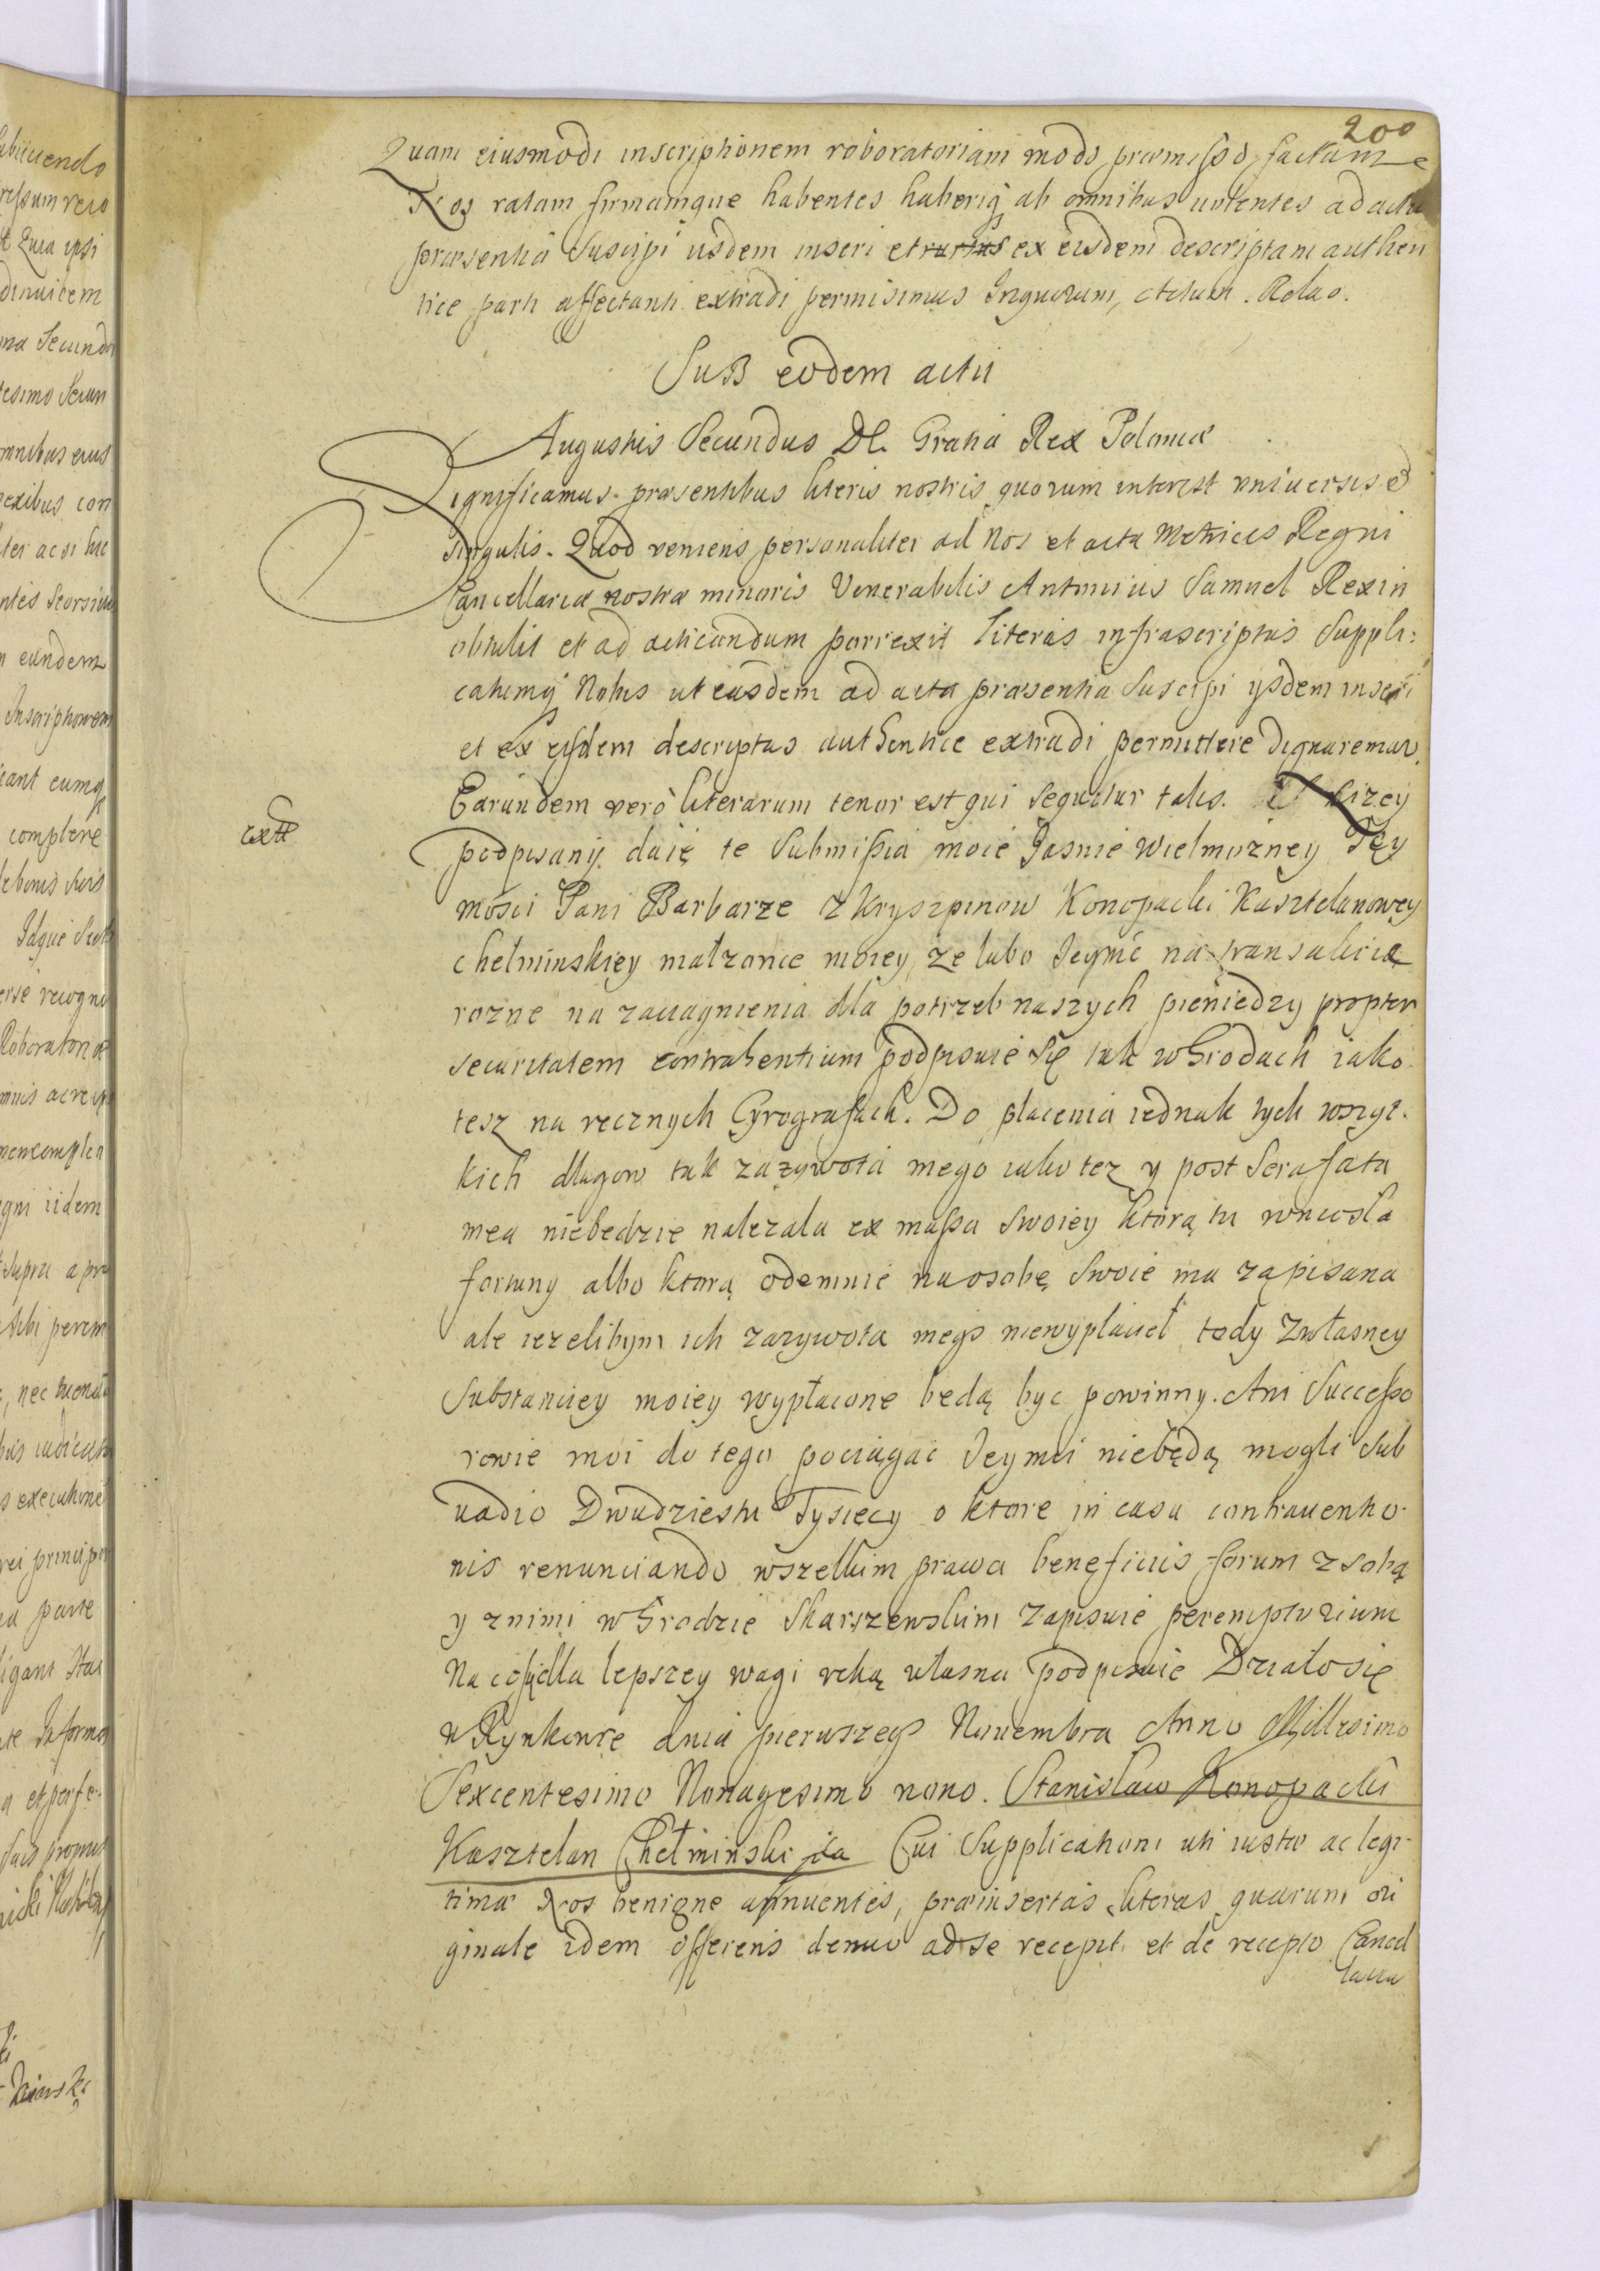 200
Quam eiusmodi inscriptionem roboratoriam modo præmisso factam
Nos ratam firmamque habentes haberiq ab omnibus volentes ad acta
præsentia suscipi iisdem inseri et rursus ex eisdem descriptam authen
tice parti affectanti extradi permisimus In quorum, Actum. Relao.
Sub eodem actu
Augustus Secundus D. Gratia Rex Poloniæ
Significamus præsentibus literis nostris quorum interest vniuersis et
singulis. Quod veniens personaliter ad Nos et acta Metrices Regni
Cancellariæ nostræ minoris Venerabilis Antonius Samuel Rexin
obtulit et ad acticandum porrexit literas infrascriptas Suppli:
cauitq Nobis ut easdem ad acta præsentia suscipi ysdem inseri
et ex eisdem descriptas authentice extradi permittere dignaremur.
Earundem verò literarum tenor est qui sequitur talis. Ja niżey
podpisany daię te Submissia moie Jasnie Wielmożney Jey
mości Pani Barbarze z Kryszpinow Konopacki Kasztelanowey
chełminskiey małzonce moiey, że lubo Jeymć na transakcie
rozne na zaciagnienia dla potrzeb naszych pieniedzy propter
securitatem contrahentium podpisuie się tak w Grodach iako
tesz na recznych Cyrografach. Do płacenia iednak tych wszyt.
kich dlugow tak zazywota mego iako tez y post sera fata
mea niebedzie nalezala ex massa swoiey którą tu wniosła
fortuny albo ktorą odemnie na osobę swoie ma zapisana
ale iezelibym ich zazywota mego niewypłacił tedy zwłasney
Substanciey moiey wypłacone będą byc powinny. Ani Successo
rowie moi do tego pociągac Jeymci niebędą mogli sub
vadio Dwudziestu Tysięcy o ktore in casu contrauentio
nis renunciando wszelkim prawa beneficiis forum zsobą
y znimi w Grodzie Skarszewskim zapisuie peremptorium
Na co się dla lepszey wagi ręką własną podpisuie Działo się
w Rynkowce dnia pierwszego Nouembra Anno Millesimo
Sexcentesimo Nonagesimo nono. Stanisław Konopacki
Kasztelan Chełminski Cui Supplicationi uti iustæ ac legi
timæ Nos benigne annuentes, præinsertas literas quarum ori
ginale idem offerens denuo ad se recepit et de recepto Cancel
laria